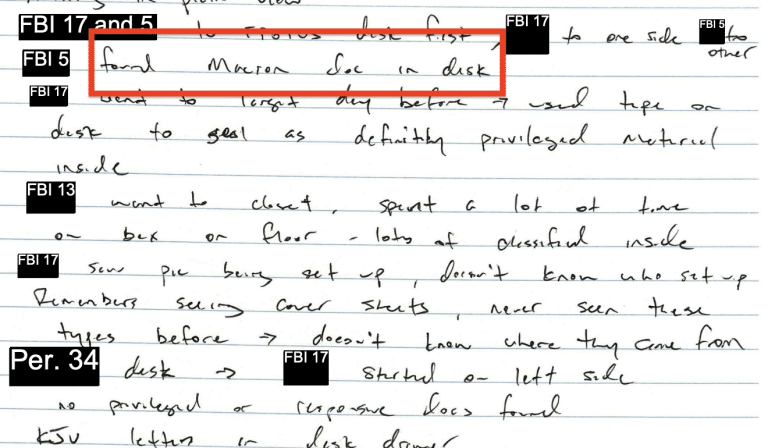 in plain view
FBI 17 and 5 to FPOTUS desk first, FBI 17 to one side FBI 5 to other
FBI 5 found Macron doc in desk
FBI 17 went to target day before → used tape on
desk to seal as definitely privileged material
inside
FBI 13 went to closet, spent a lot of time
on box on floor - lots of classified inside
FBI 17 saw pic being set up, doesn't know who set up
Remembers seeing cover sheets, never seen these
types before → doesn't know where they came from
Per. 34 desk → FBI 17 started on left side
no privileged or responsive docs found
KJU letters in desk drawer